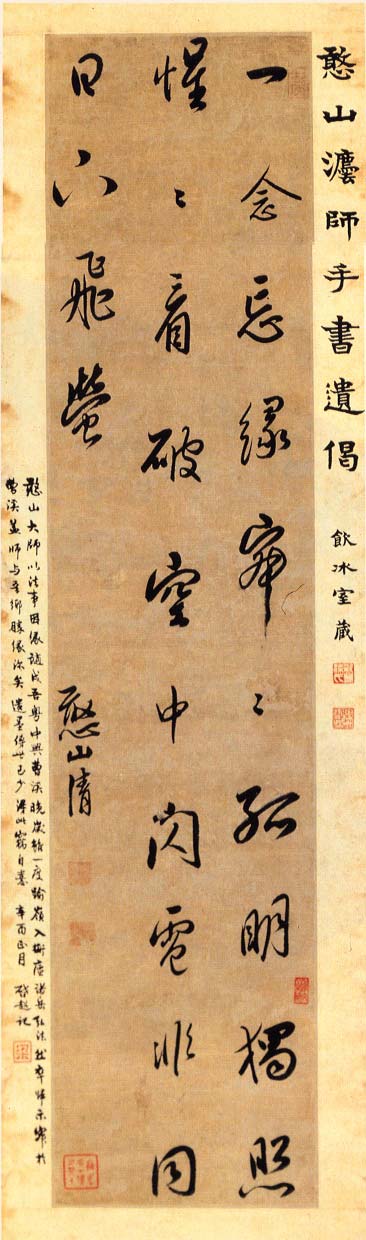 憨山灋師手書遺偈
飲冰室藏
一念忘緣寂〻孤明獨照
惺〻看破空中閃電非同
日下飛螢
憨山清
憨山大師以法事因緣謫戍吾粵中興曹溪晚歲雖一度踰嶺入衡廬諸岳弘法然卒歸示寂於
曹溪蓋師与吾鄉勝緣深矣遺墨傳世已少得此竊自喜 辛酉正月 啓超記